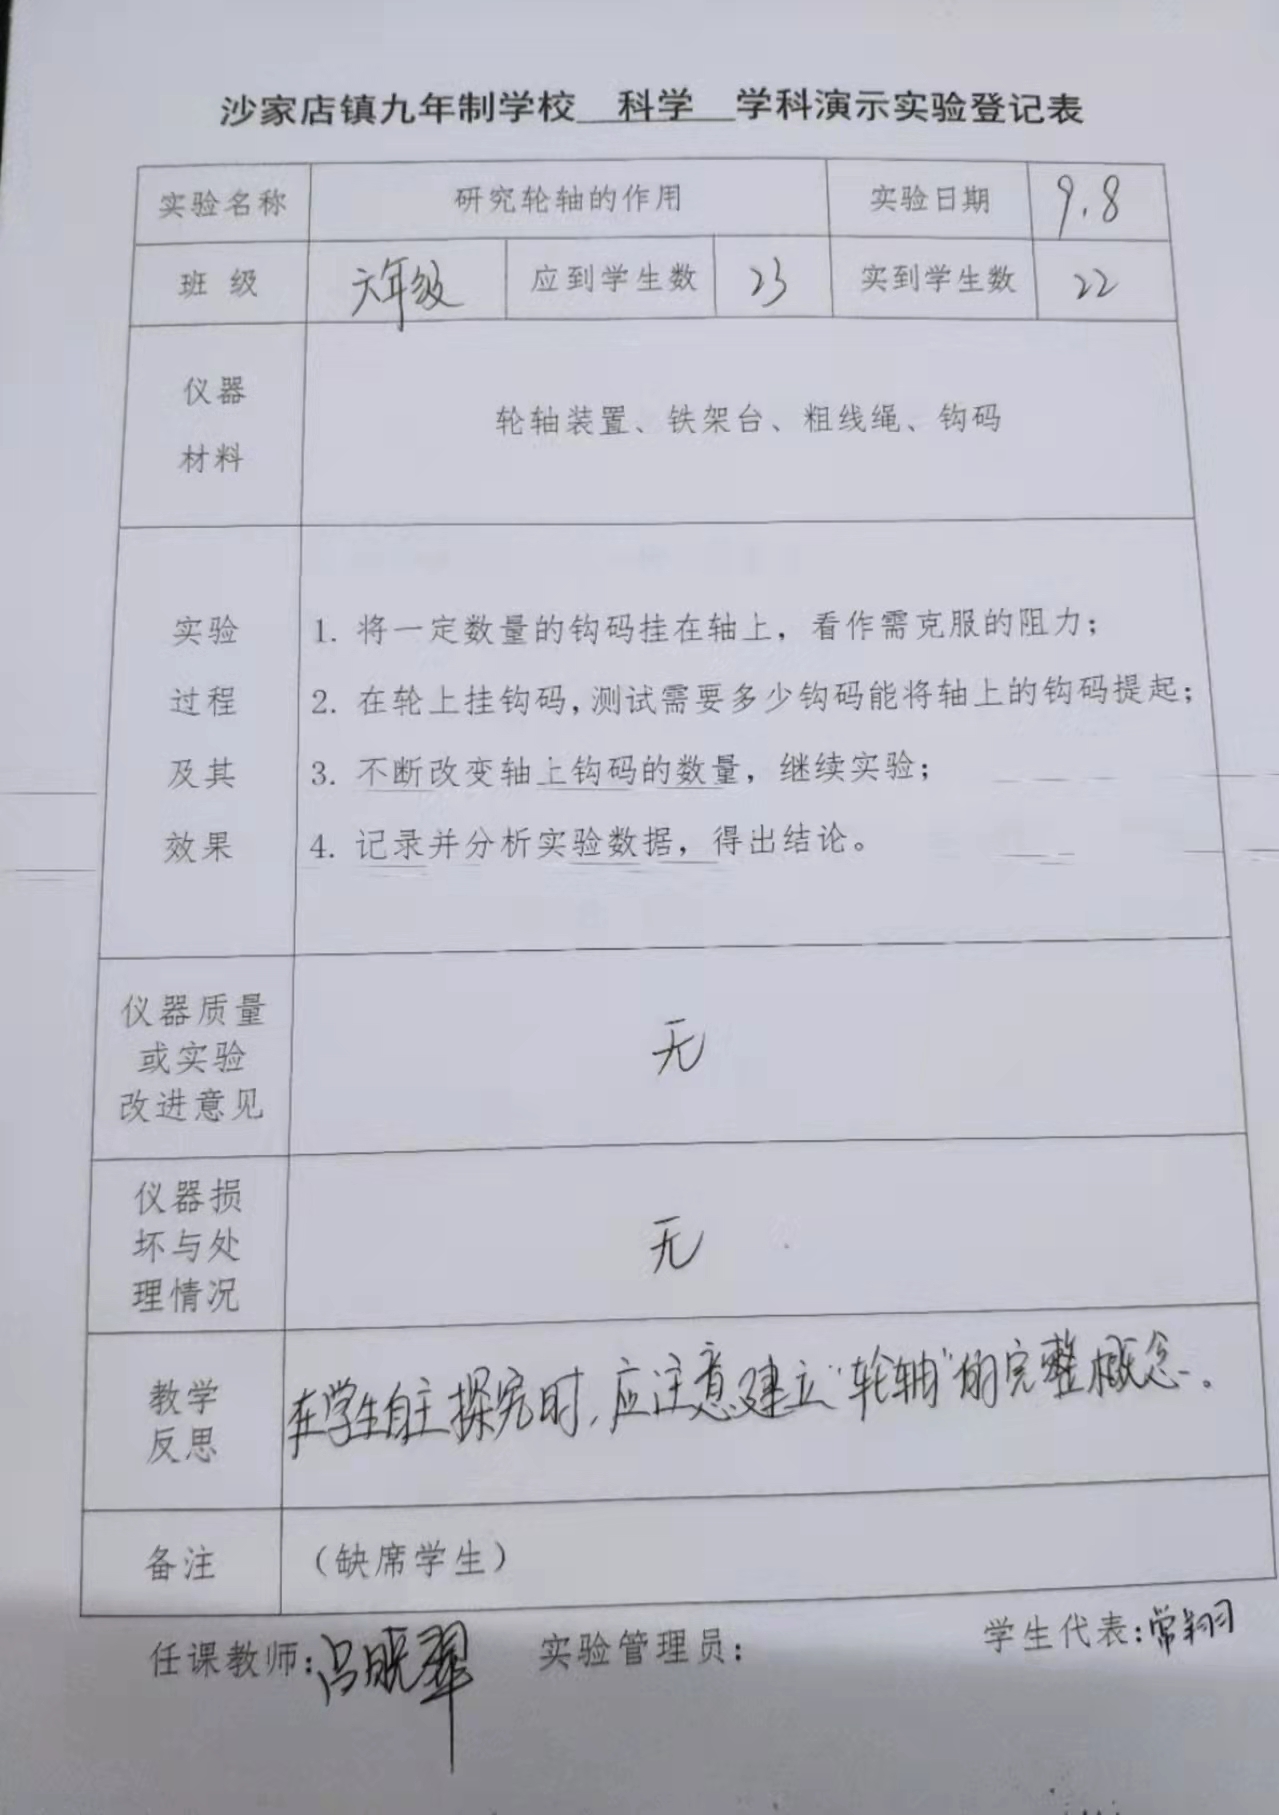 沙家店镇九年制学校 科学 学科演示实验登记表
实验名称 研究轮轴的作用 实验日期 9.8
班 级 六年级 应到学生数 23 实到学生数 22
仪器
材料
轮轴装置、铁架台、粗线绳、钩码
实验
过程
及其
效果
1. 将一定数量的钩码挂在轴上，看作需克服的阻力；
2. 在轮上挂钩码，测试需要多少钩码能将轴上的钩码提起；
3. 不断改变轴上钩码的数量，继续实验；
4. 记录并分析实验数据，得出结论。
仪器质量
或实验
改进意见
无
仪器损
坏与处
理情况
无
教学
反思
在学生自主探究时，应注意建立“轮轴”的完整概念。
备注 （缺席学生）
任课教师：吕晓翠 实验管理员： 学生代表：常翔